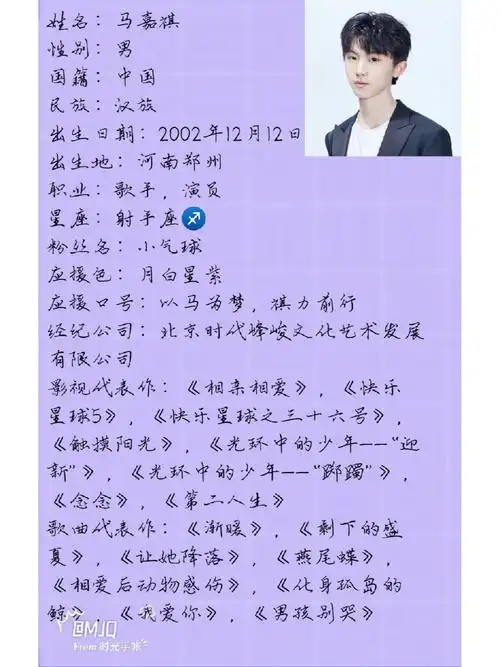 姓名：马嘉祺
性别：男
国籍：中国
民族：汉族
出生日期：2002年12月12日
出生地：河南郑州
职业：歌手，演员
星座：射手座♐
粉丝名：小气球
应援色：月白星紫
应援口号：以马为梦，祺力前行
经纪公司：北京时代峰峻文化艺术发展
有限公司
影视代表作：《相亲相爱》，《快乐
星球5》，《快乐星球之三十六号》，
《触摸阳光》，《光环中的少年——“迎
新”》，《光环中的少年——“踯躅”》，
《念念》，《第二人生》
歌曲代表作：《渐暖》，《剩下的盛
夏》，《让她降落》，《燕尾蝶》，
《相爱后动物感伤》，《化身孤岛的
鲸》，《我爱你》，《男孩别哭》
@MJQ
From 时光手帐